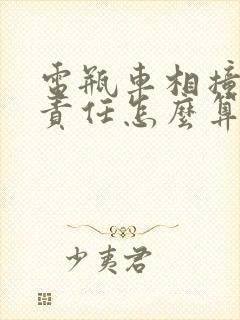 電瓶車相撞
責任怎麼算
少夷君